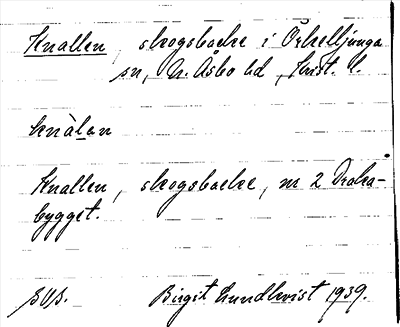 Knallen, skogsbacke i Örkelljunga
sn, N. Åsbo hd, Krist. l.
knàlan
Knallen, skogsbacke, nr 2 Draka-
bygget.
Birgit Lundkvist 1939.